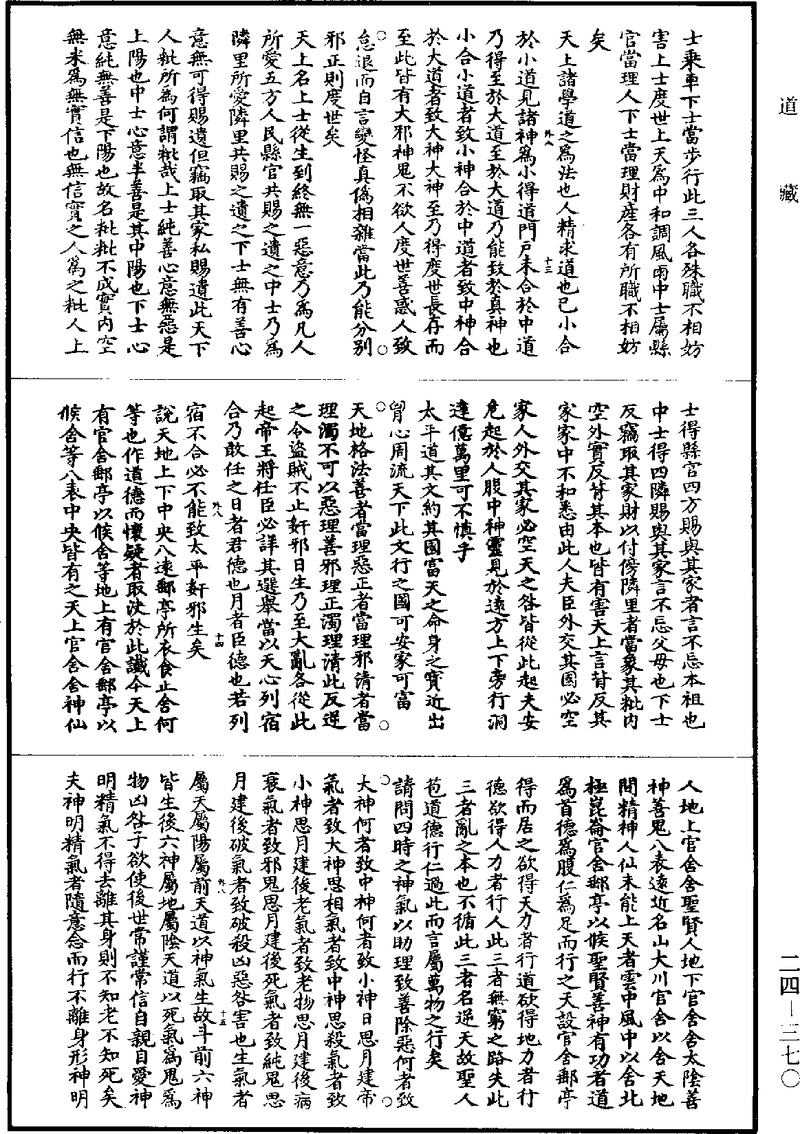 道藏
士乘車下士當步行此三人各殊職不相妨
害上士度世上天爲中和調風雨中士屬縣
官當理人下士當理財産各有所職不相妨
矣
天上諸學道之爲法也人精求道也已小合
外八
十三
於小道見諸神爲小得道門戶未合於中道
乃得至於大道至於大道乃能致於真神也
小合小道者致小神合於中道者致中神合
於大道者致大神大神至乃得度世長存而
至此皆有大邪神鬼不欲人度世善惑人致
怠退而自言變怪真僞相雜當此乃能分別
邪正則度世矣
天上名上士從生到終無一惡意乃爲凡人
所愛五方人民縣官共賜之遺之中士乃爲
隣里所愛隣里共賜之遺之下士無有善心
意無可得賜遺但竊取其家私賜遺此天下
人粃所爲何謂粃哉上士純善心意無惡是
上陽也中士心意半善是其中陽也下士心
意純無善是下陽也故名粃粃不成實内空
無米爲無實信也無信實之人爲之粃人上
士得縣官四方賜與其家者言不忘本祖也
中士得四隣賜與其家言不忘父母也下士
反竊取其家財以付傍隣里者當象其粃内
空外實反背其本也皆有害天上言背反其
家家中不和悉由此人夫臣外交其國必空
家人外交其家必空天之咎皆從此起夫安
危起於人腹中神靈見於遠方上下旁行洞
達億萬里可不慎乎
太平道其文約其國富天之命身之寶近出
胷心周流天下此文行之國可安家可富
天地格法善者當理惡正者當理邪清者當
理濁不可以惡理善邪理正濁理清此反逆
之令盜賊不止奸邪日生乃至大亂各從此
起帝王將任臣必詳其選舉當以天心列宿
合乃敢任之日者君德也月者臣德也若列
外八
十四
宿不合必不能致太平奸邪生矣
說天地上下中央八遠郵亭所衣食止舍何
等也作道德而懷疑者取決於此讖今天上
有官舍郵亭以候舍等地上有官舍郵亭以
候舍等八表中央皆有之天上官舍舍神仙
人地上官舍舍聖賢人地下官舍舍太陰善
神善鬼八表遠近名山大川官舍以舍天地
間精神人仙未能上天者雲中風中以舍北
極崑崙官舍郵亭以候聖賢善神有功者道
爲首德爲腹仁爲足而行之天設官舍郵亭
得而居之欲得天力者行道欲得地力者行
德欲得人力者行人此三者無窮之路失此
三者亂之本也不循此三者名逆天故聖人
苞道德行仁過此而言屬萬物之行矣
請問四時之神氣以助理致善除惡何者致
大神何者致中神何者致小神日思月建帝
氣者致大神思相氣者致中神思殺氣者致
小神思月建後老氣者致老物思月建後病
衰氣者致邪鬼思月建後死氣者致純鬼思
月建後破氣者致破殺凶惡咎害也生氣者
外八
十五
屬天屬陽屬前天道以神氣生故斗前六神
皆生後六神屬地屬陰天道以死氣爲鬼爲
物凶咎子欲使後世常謹常信自親自愛神
明精氣不得去離其身則不知老不知死矣
夫神明精氣者隨意念而行不離身形神明
二四—三七〇